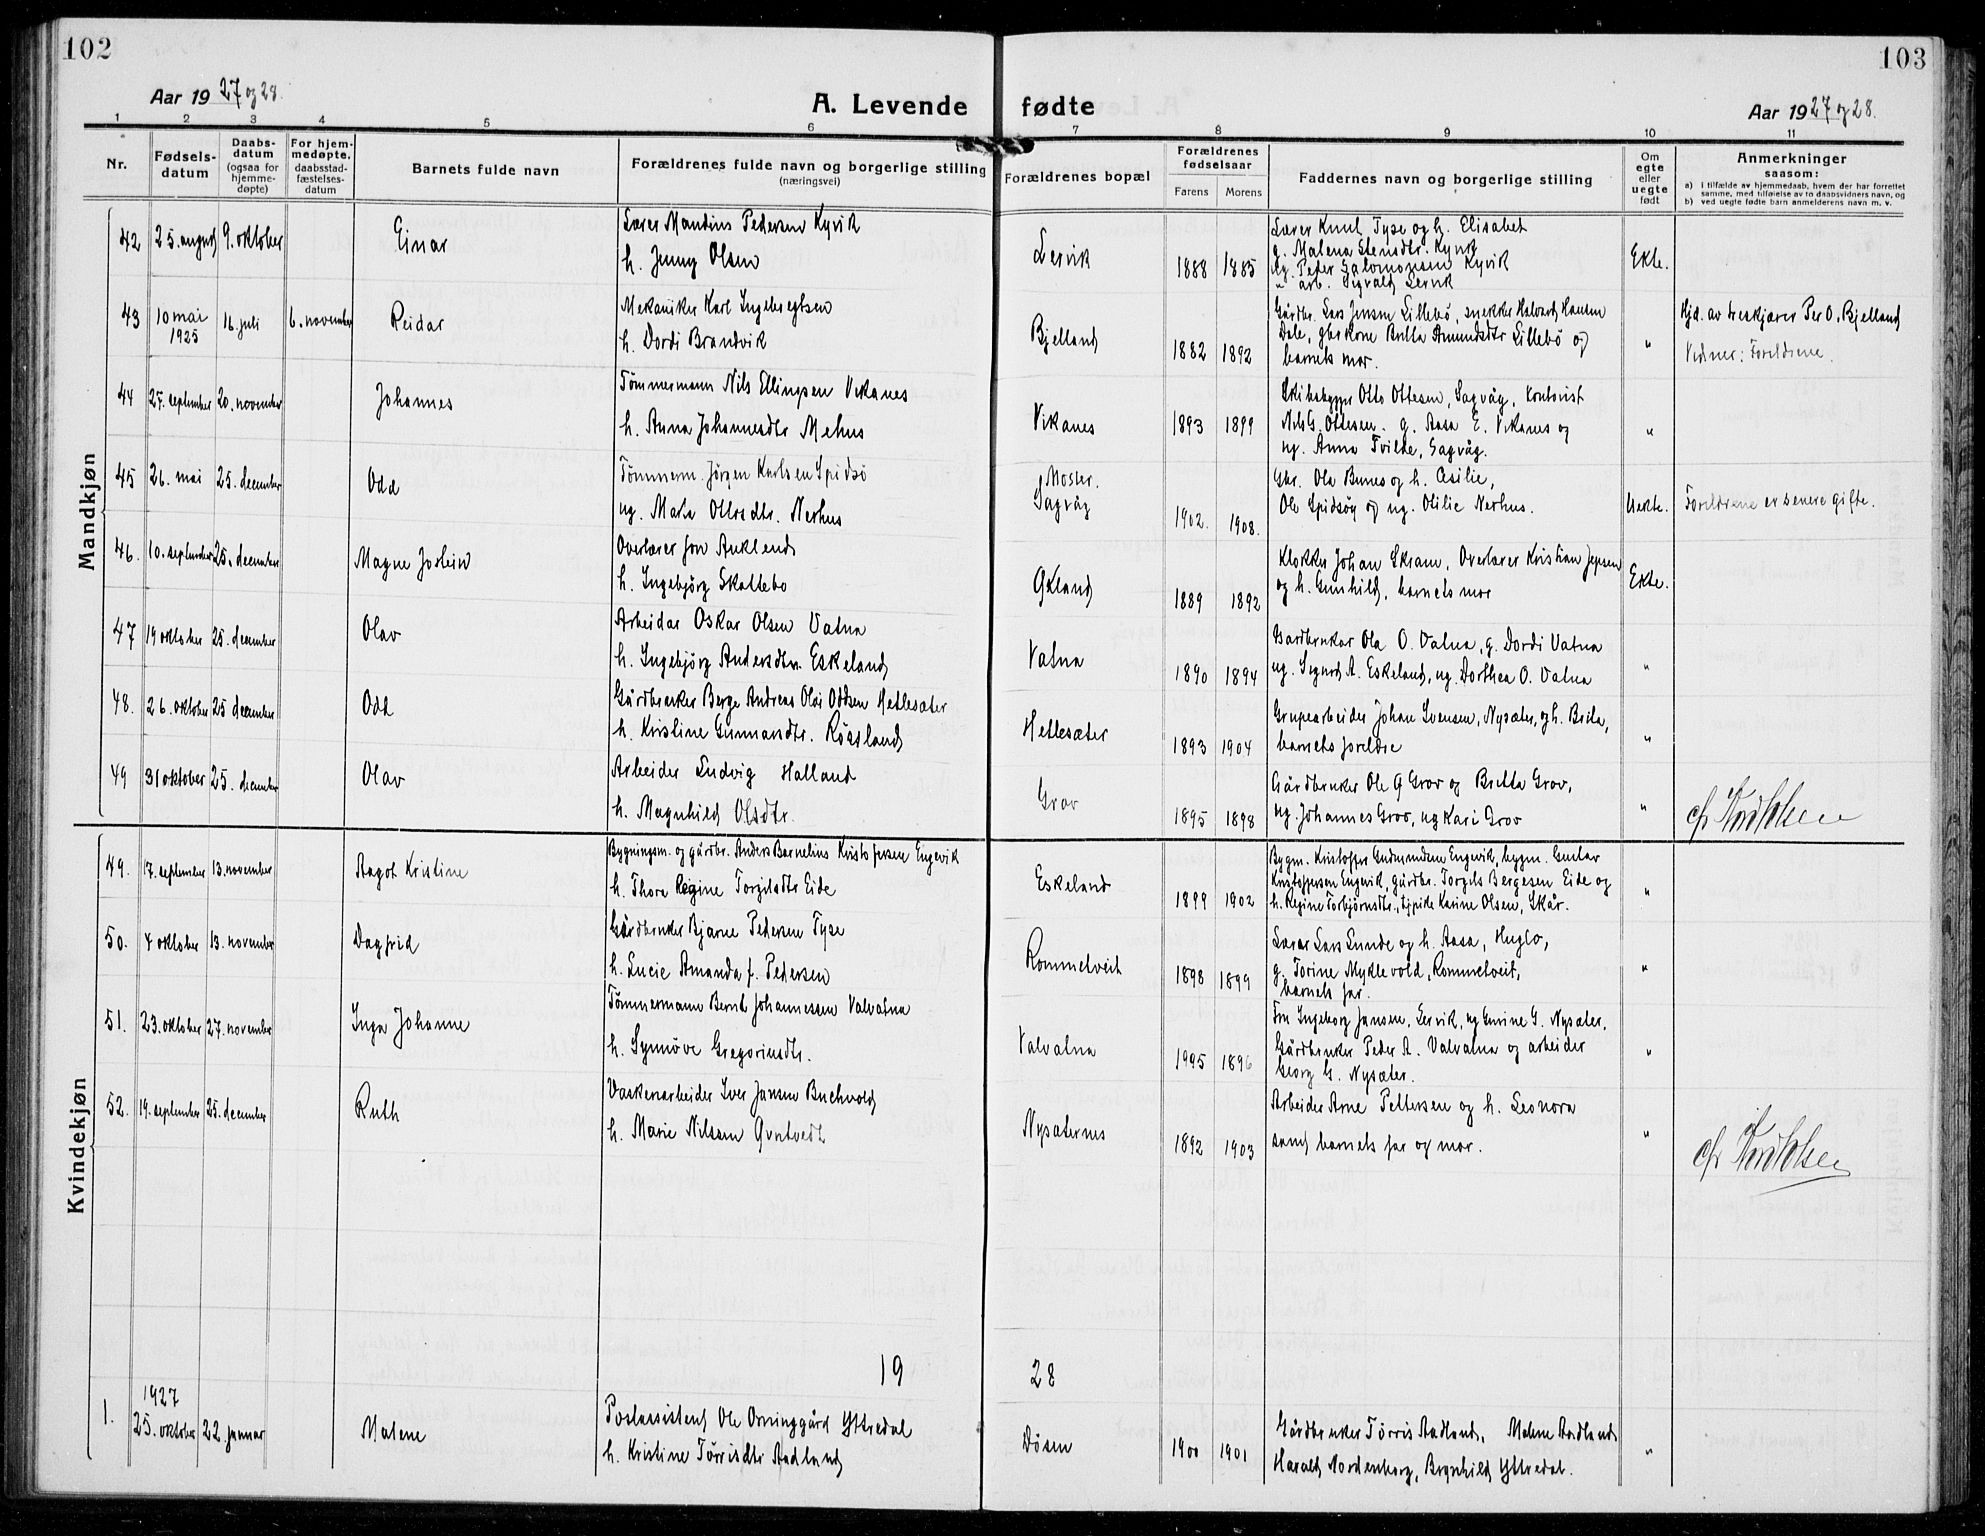 102
103
Aar 1927 og 28.
A. Levende fødte
Aar 1927 og 28.
1 2 3 4 5 6 7 8 9 10 11
Nr.
Fødselsdatum
Daabsdatum (ogsaa for hjemmedøpte)
For hjemmedøpte, daabsstadfæstelsesdatum
Barnets fulde navn
Forældrenes fulde navn og borgerlige stilling
(næringsvei)
Forældrenes bopæl
Forældrenes fødselsaar
Farens Morens
Faddernes navn og borgerlige stilling
Om egte eller uegte født
Anmerkninger saasom:
a) I tilfælde av hjemmedaab, hvem der har forrettet samme, med tilføielse av to daabsvidners navn, og
b) ved uegte fødte barn anmelderens navn m. v.
Mandkjøn
42 25. august 9. oktober Einar
Lærer Mandius Pedersen Kyvik
h. Jenny Olsen
Lervik 1888 1885
Lærer Knut Tyse og h. Elisabet
g. Malena Stensdtr. Kyvik
Peder Salomonsen Kyvik
" arb. Sigvald Lervik
Ekte.
43 10 mai 1925 16. juli 6. november Reidar
Mekaniker Karl Ingebregtsen
h. Dordi Brandvik
Bjelland 1882 1892
Gårdbr. Lars Jensen Lillebö, snekker Halvard
Dale, Amundsdtr Lillebö og
barnets mor.
"
Hjd. av Per O. Bjelland
Vidner: Foreldrene.
44 27. september 20. november Johannes
Tømmermann Nils Ellingsen Vikanes
h. Anna Johannesdtr Mehus
Vikanes 1893 1899
Skibsbygger Otto Ottesen, Sagvåg, Kontorist
Nils G. Ottesen. g. Aasa E. Vikanes og
ug. Anna Tveite, Sagvåg.
"
45 26. mai 25. december Odd
Tømmerm. Jörgen Karlsen Spidsö
ug. Marta Olsdtr. Nerhus
Moster.
Sagvåg 1902. 1908.
Gbr. Ola Bunes og h. Cecilie,
Ole Spidsöy og ug. Otilie Nerhus.
Uekte.
Foreldrene er senere gifte.
46. 10. september 25. december Magne Jostein
Overlærer Jon Aukland
h. Ingebjørg Skattebo
Økland 1889 1892
Klokker Johan Skram, Overlærer Kristian Jepsen
og h. Gunhild, barnets mor
Ekte.
47 19 oktober 25. december Olav
Arbeider Oskar Olsen Vatna
h. Ingebjörg Andersdtr. Eskeland
Vatna 1890 1894
Gardbrukar Ola O. Vatna, g. Dordi Vatna
ug. Sigurd A. Eskeland, ug. Dorthea O. Vatna
"
48. 26. oktober 25 december Odd
Gårdbruker Berge Andreas Olai Oddsen Hetlesæter
h. Kristine Gunnarsdtr. Røssland
Hetlesæter 1893 1904
Grupearbeider Johan Svensen, Nysæter, og h. Brita,
barnets foreldre
"
49 31 oktober 25. december Olav
Arbeider Ludvig Halland
h. Magnhild Olsdtr.
Grov 1895 1898
Gårdbruker Ole G Grov og Britta Grov,
ug. Johannes Grov, ug Kari Grov
"
Kvindekjøn
49. 17. september 13. november Aagot Kristine
Bygningsm. og gårdbr. Anders Barnelius Kristoffersen Engevik
h. Thora Regine Torgilsdtr Eide
Eskeland 1899 1902
Bygm. Kristoffer Gudmundsen Engevik, bygm. Gustav
Kristoffersen Engevik, gårdbr. Torgils Bergesen Eide og
h. Regine Torbjörnsdtr., Karine Olsen, Skår.
"
50. 4 oktober 13. november Dagfrid
Gårdbruker Bjarne Pedersen Tyse
h. Lucie Amanda f. Pedersen
Rommetveit 1898 1899
Lærer Lars Lunde og h. Aasa, Huglo,
g. Torine Myklevold, Rommetveit,
barnets far.
"
51. 23. oktober 27. november Inga Johanne
Tömmermann Bernt Johannessen Valvatna
h. Synnöve Gregoriusdtr.
Valvatna 1995 1896
Fru Ingeborg Jansen, Lervik, ug Gurine G. Nysæter,
Gårdbruker Peder A. Valvatna og arbeider
Georg G. Nysæter.
"
52. 19. september 25. december Ruth
Vaskeriarbeider Iver Jansen Buchvold
h. Marie Nilsen Grutvedt
Nysæternes 1892 1903
Arbeider Arne Pettersen og h. Leonora
samt barnets far og mor.
"
19 28
1. 1927 25. oktober 22 januar Malene
Postassistent Ole Orninggård Yttredal
h. Kristine Törrisdtr Aadland
Døsen 1900 1901
Gårdbruker Törris Aadland, Malene Aadland
Harald Nordenborg, Brynhild Yttredal.
"